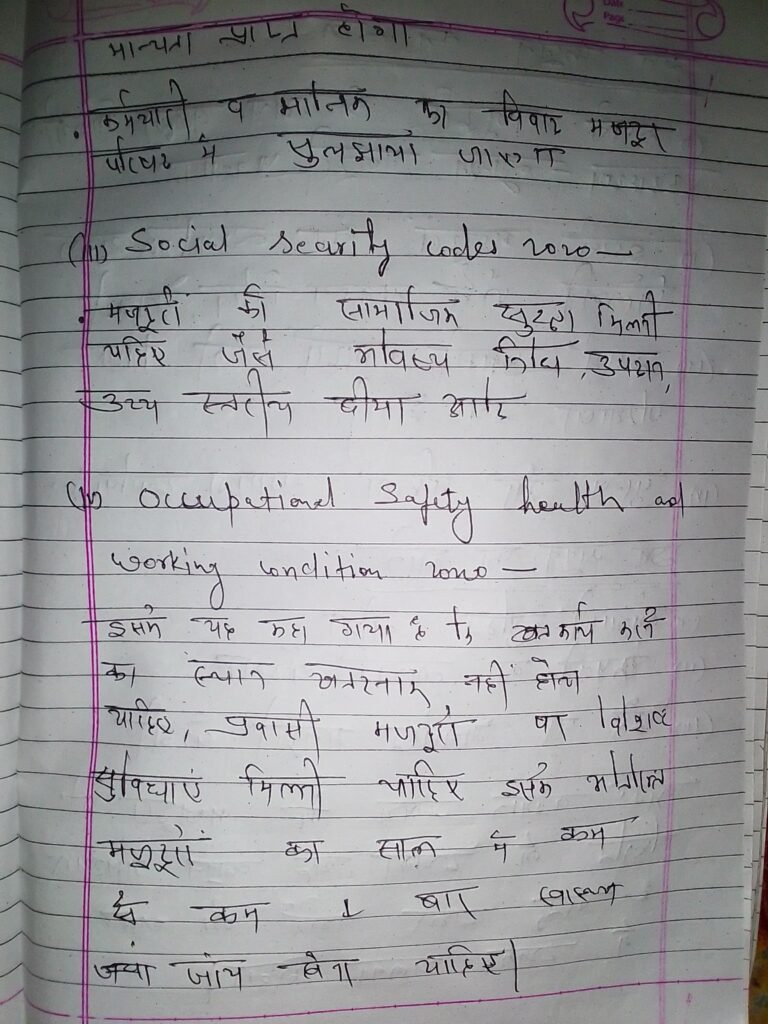 Date
Page
मान्यता प्राप्त होगा
• कर्मचारी व मालिक का विवाद मजदूर
परिषद में सुलझाया जाएगा
(iii) Social Security codes 2020 —
• मजदूरों को सामाजिक सुरक्षा मिलनी
चाहिए जैसे भविष्य निधि, उपदान,
उच्च स्तरीय बीमा आदि
(iv) Occupational Safety health and
working condition 2020 —
इसमें यह कहा गया है कि कार्य करने
का स्थान खतरनाक नहीं होना
चाहिए, प्रवासी मजदूरों का विशेष
सुविधाएं मिलनी चाहिए इसके अतिरिक्त
मजदूरों का साल में कम
से कम 1 बार स्वास्थ्य
जांच होना चाहिए।